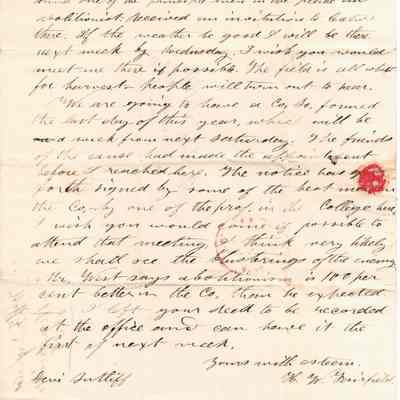 found one of the principle men in the
abolitionist, received an invitation to lecture
there. If the weather be good I will be there
next week by Wednesday. I wish you would
meet me there if possible. The field is all white
for harvest – people will turn out to hear.
We are going to have a Co. So. formed
the last day of this year, which will be
week from next Saturday. The friends
of the cause had made the appointment
before I reached here. The notice has
forth signed by some of the best men in
the Co. by one of the prof. in the College here.
I wish you would come if possible to
attend that meeting, I think very likely
we shall see the blusterings of the enemy.
Mr. West says abolitionism is 100 per
cent better in the Co. than he expected
I left your deed to be recorded
at the office and can have it the
first of next week.
Yours with esteem.
Levi Sutliff H. W.